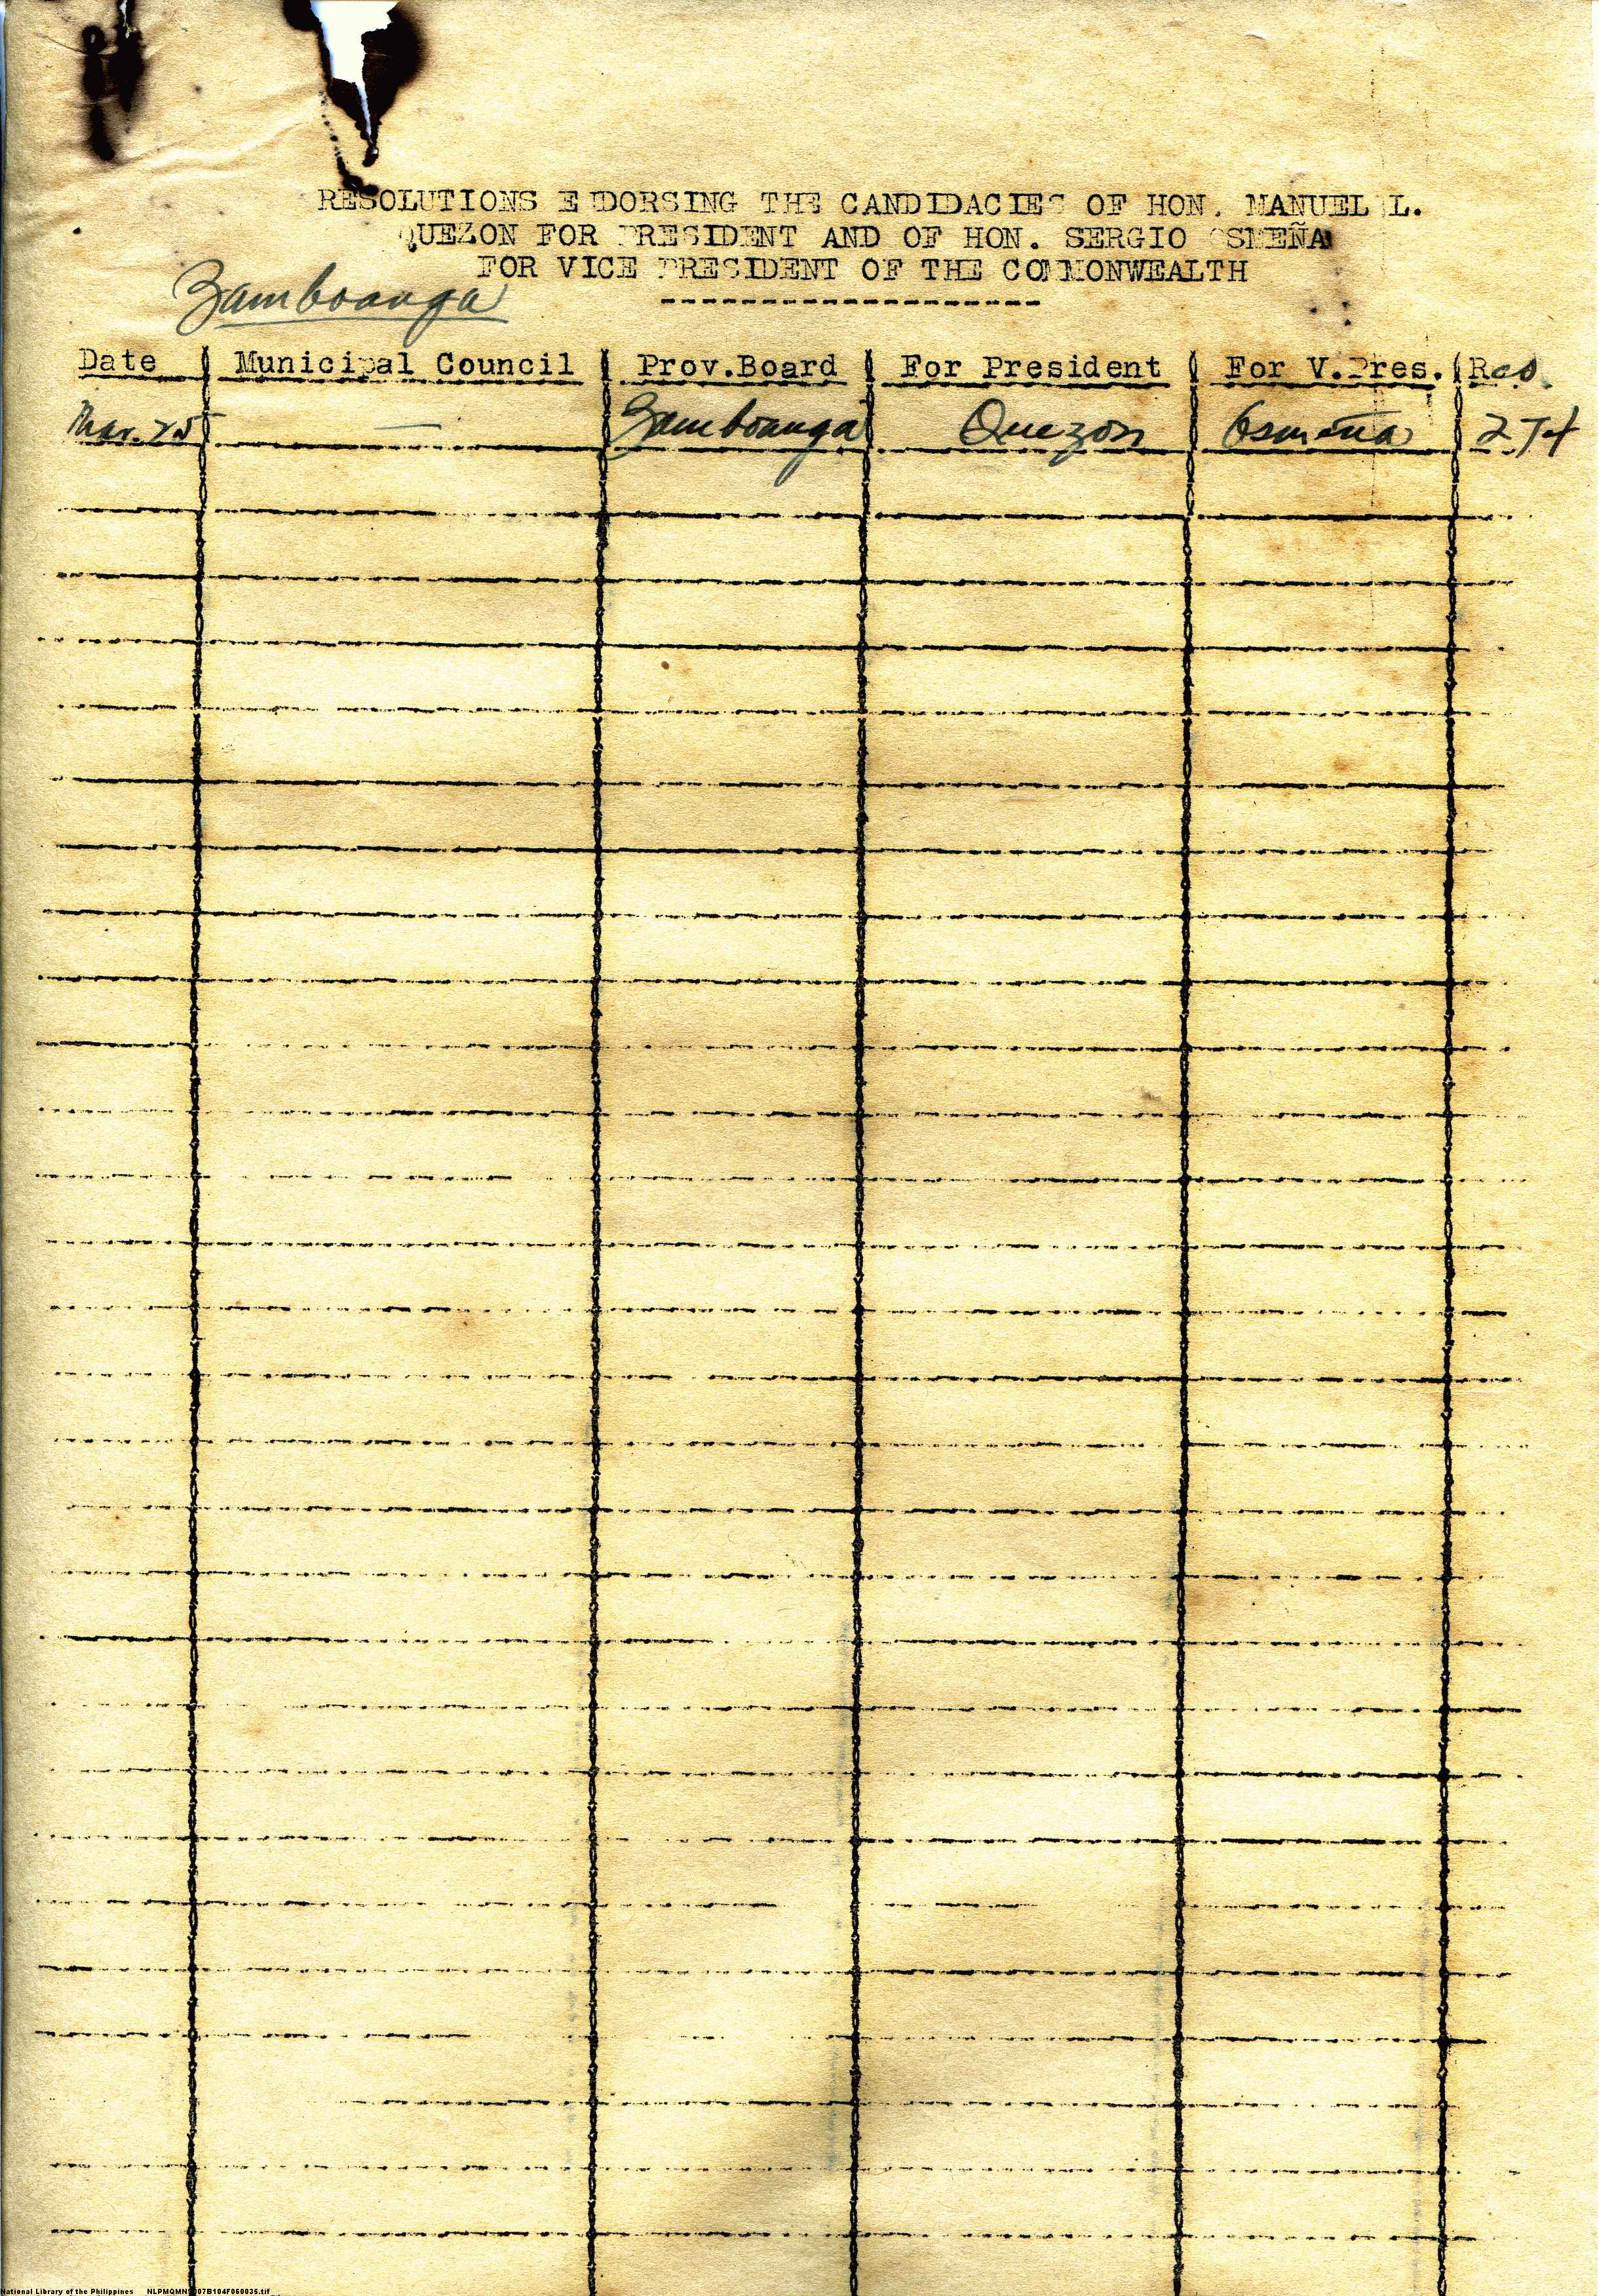 RESOLUTIONS ENDORSING THE CANDIDACIES OF HON. MANUEL L.
QUEZON FOR PRESIDENT AND OF HON. SERGIO OSMEÑA
FOR VICE PRESIDENT OF THE COMMONWEALTH
Zamboanga
Date Municipal Council Prov.Board For President For V.Pres. Res.
Mar. 25 — Zamboanga Quezon Osmeña
National Library of the Philippines